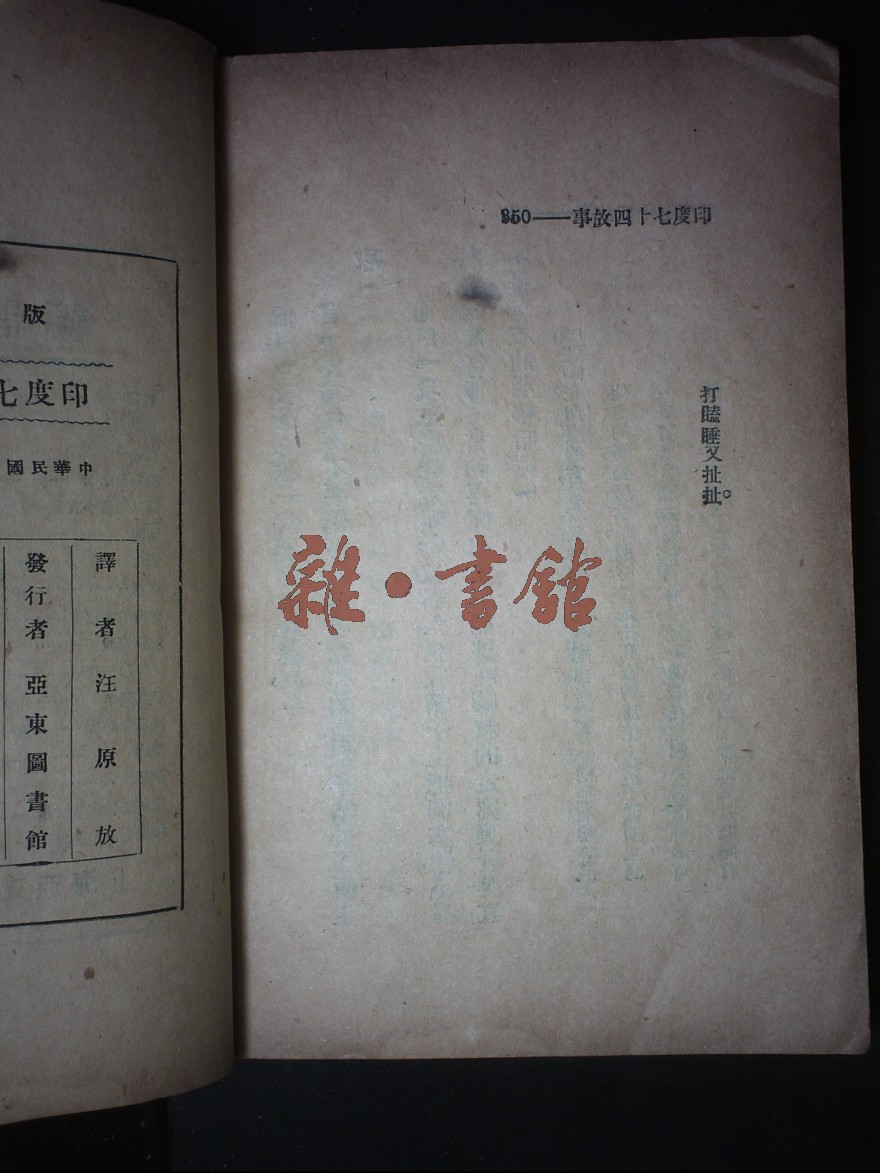 印度七十四故事——350
打瞌睡又扯扯。
雜·書館
版
印度七
中華民國
譯者汪原放
發行者亞東圖書館